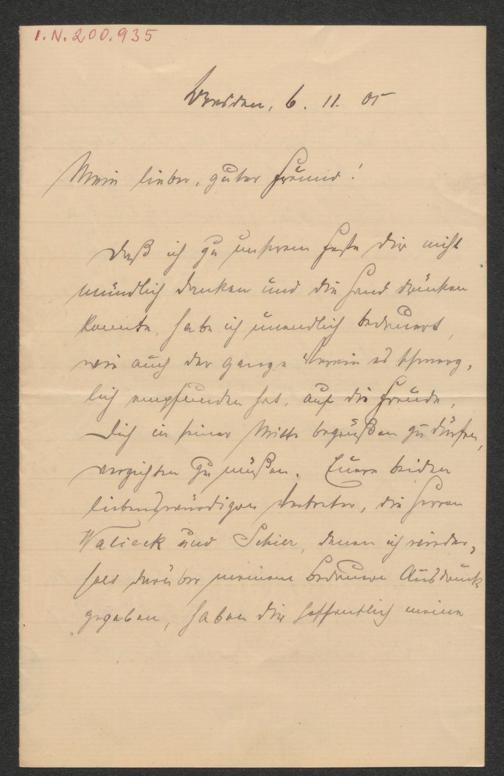 I.N.200.935
Dresden, 6. 11. 05
Mein lieber, guter Freund!
Daß ich zu unserem Feste Dir nicht
mündlich danken und die Hand drücken
konnte, habe ich unendlich bedauert,
wie auch der ganze Verein es schmerz-
lich empfunden hat, auf die Freude,
Dich in seiner Mitte begrüßen zu dürfen,
verzichten zu müßen. Eure beiden
liebenswürdigen Vertreter, die Herren
Walieck und Schier, denen ich wieder-
holt darüber meinem Bedauern Ausdruck
gegeben, haben Dir hoffentlich meine